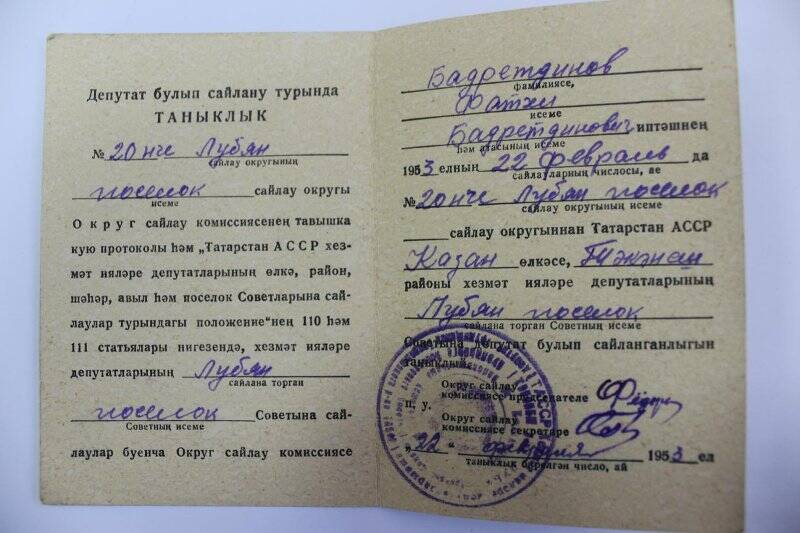 Депутат булып сайлану турында
ТАНЫКЛЫК
№ 20 нче Лубян
сайлау округының
поселок сайлау округы
исеме
Округ сайлау комиссиясенең тавышка
кую протоколы һәм „Татарстан АССР хез-
мәт ияләре депутатларының өлкә, район,
шәһәр, авыл һәм поселок Советларына сай-
лаулар турындагы положение“нең 110 һәм
111 статьялары нигезендә, хезмәт ияләре
депутатларының Лубян
сайлана торган
поселок Советына сай-
Советның исеме
лаулар буенча Округ сайлау комиссиясе
Бадретдинов
фамилиясе,
Фатхи
исеме
Бадретдинович иптәшнең
һәм атасының исеме
1953 елның 22 февраль да
сайлауларның числосы, ае
№ 20 нче Лубян поселок
сайлау округының исеме
сайлау округыннан Татарстан АССР
Казан өлкәсе,
районы хезмәт ияләре депутатларының
Лубян поселок
сайлана торган Советның исеме
Советына депутат булып сайланганлыгын
таныклый.
Округ сайлау
комиссиясе председателе
П. у.
Округ сайлау
комиссиясе секретаре
„22 - февраля 1953 ел
таныклык бирелгән число, ай